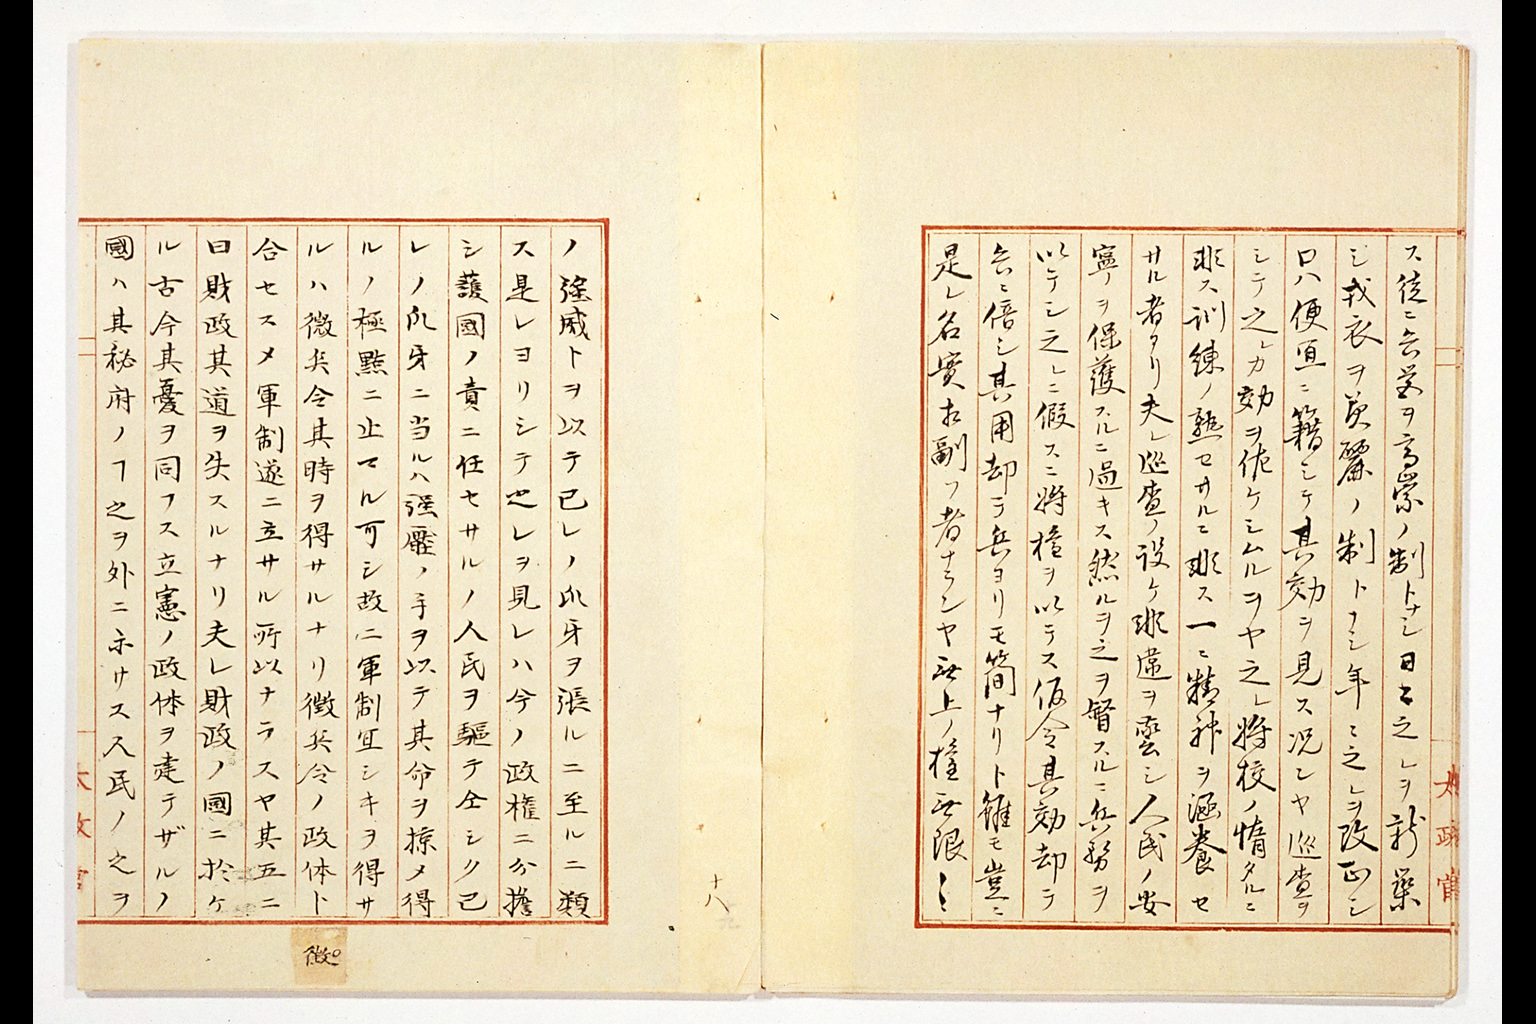 ス徒ニ兵営ヲ高崇ノ制トナシ日ニ之レヲ新築
シ戎衣ヲ美麗ノ制トナシ年ニ之レヲ改正シ
口ハ便宜ニ籍シテ其効ヲ見ス况ンヤ巡査ヲ
シテ之レカ効ヲ佐ケシムルヲヤ之レ将校ノ惰タルニ
非ス訓練ノ熟セサルニ非ス一ニ精神ヲ涵養セ
サル者ナリ夫レ巡査ノ設ケ非違ヲ察シ人民ノ安
寧ヲ保護スルニ過キス然ルヲ之ヲ督スルニ兵務ヲ
以テシ之レニ假スニ将權ヲ以テス仮令其効却テ
兵ニ倍シ其用却テ兵ヨリモ簡ナリト雖モ豈ニ
是レ名實相副フ者ナランヤ無上ノ權無限
ノ強威トヲ以テ已レノ爪牙ヲ張ルニ至ルニ類
ス是レヨリシテ之レヲ見レハ今ノ政権ニ分擔
シ護國ノ責ニ任セサルノ人民ヲ驅テ全シク己
レノ爪牙ニ当ルハ強壓ノ手ヲ以テ其命ヲ掠メ得
ルノ極點ニ止マル可シ故ニ軍制宜シキヲ得サ
ルハ徴兵令其時ヲ得サルナリ徴兵令ノ政体ト
合セスメ軍制遂ニ立サル所以ナラスヤ其五ニ
曰財政其道ヲ失スルナリ夫レ財政ノ國ニ於ケ
ル古今其憂ヲ同フス立憲ノ政体ヲ建テザルノ
國ハ其秘府ノヿ之ヲ外ニ示サス人民ノ之ヲ
太政官
十八
徴